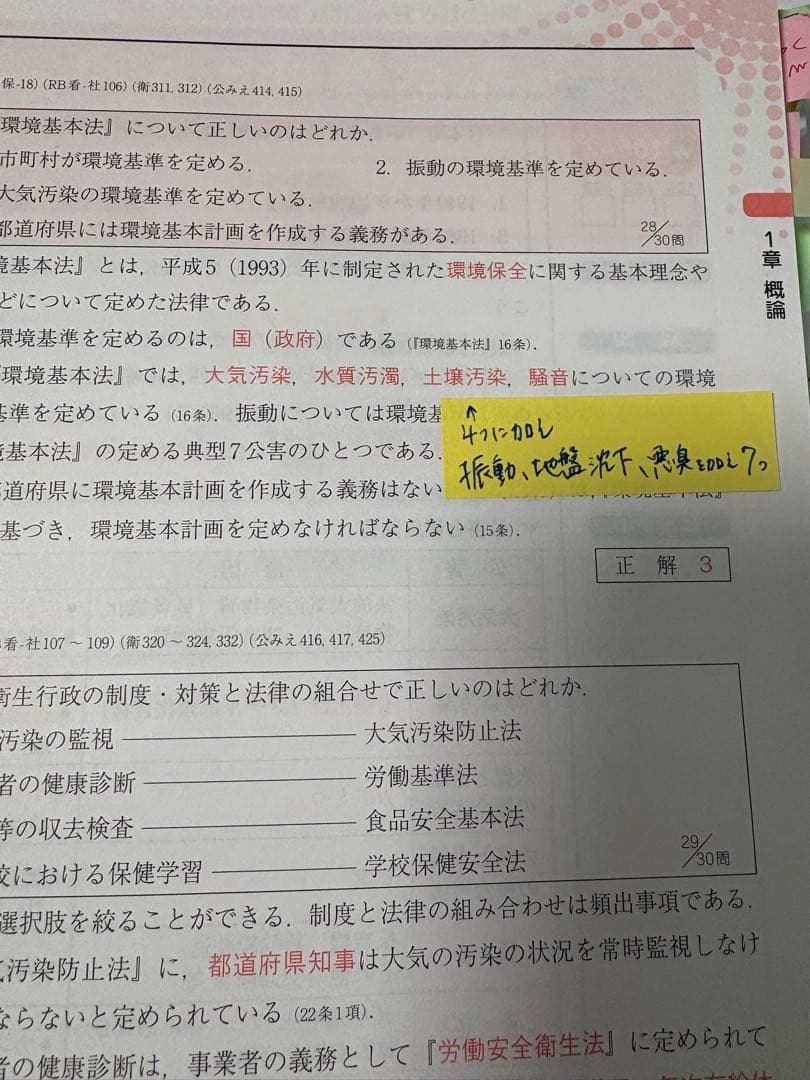 保-18)(RB看-社106)(衛311, 312)(公みえ414, 415)
環境基本法』について正しいのはどれか.
市町村が環境基準を定める.
2. 振動の環境基準を定めている.
大気汚染の環境基準を定めている.
都道府県には環境基本計画を作成する義務がある.
28/30問
1章 概論
境基本法』とは,平成5(1993)年に制定された環境保全に関する基本理念や
どについて定めた法律である.
環境基準を定めるのは,国(政府)である(『環境基本法』16条).
環境基本法』では,大気汚染,水質汚濁,土壌汚染,騒音についての環境
基準を定めている(16条).振動については環境
↑
4つに加え
振動、地盤沈下、悪臭を加え7つ
境基本法』の定める典型7公害のひとつである.
都道府県に環境基本計画を作成する義務はない
基づき,環境基本計画を定めなければならない(15条).
正解 3
看-社107~109)(衛320~324, 332)(公みえ416, 417, 425)
衛生行政の制度・対策と法律の組合せで正しいのはどれか.
汚染の監視 ――― 大気汚染防止法
者の健康診断 ――― 労働基準法
等の収去検査 ――― 食品安全基本法
校における保健学習 ――― 学校保健安全法
29/30問
選択肢を絞ることができる.制度と法律の組み合わせは頻出事項である.
気汚染防止法』に,都道府県知事は大気の汚染の状況を常時監視しなけ
ならないと定められている(22条1項).
者の健康診断は,事業者の義務として『労働安全衛生法』に定められて